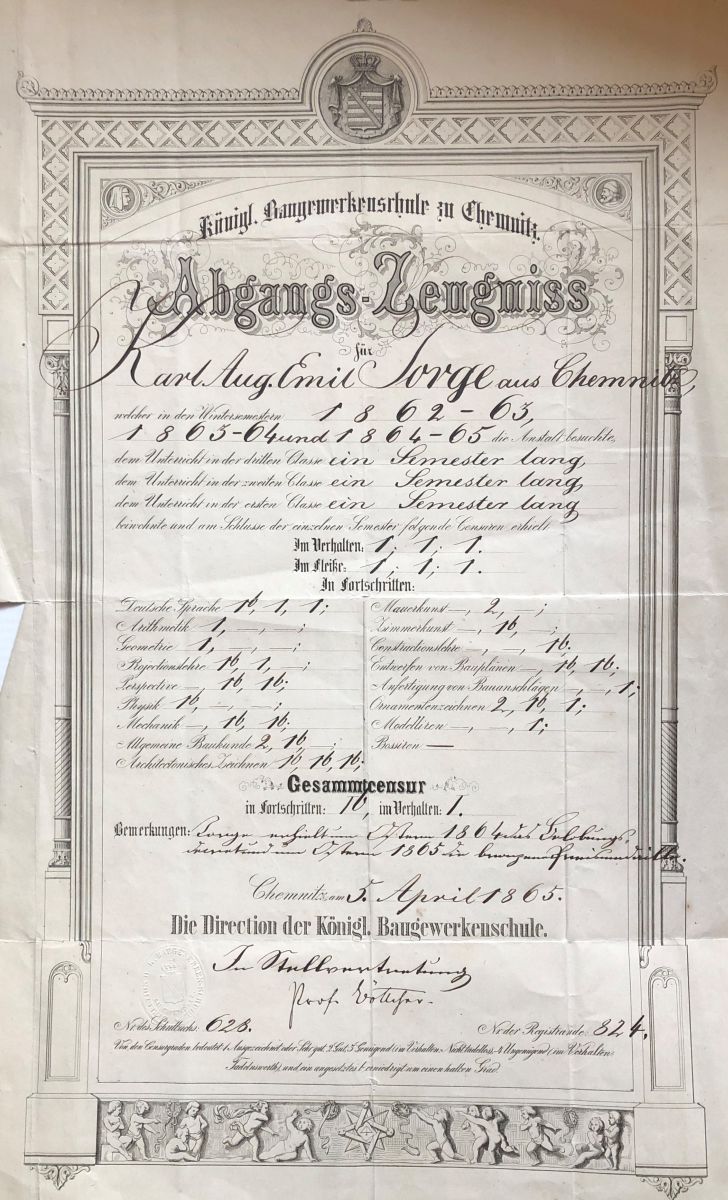 Königl. Baugewerkenschule zu Chemnitz.
Abgangs-Zeugniss
für
Karl Aug. Emil Sorge aus Chemnitz,
welcher in den Wintersemestern 1862-63,
1863-64 und 1864-65 die Anstalt besuchte,
dem Unterricht in der dritten Classe ein Semester lang,
dem Unterricht in der zweiten Classe ein Semester lang,
dem Unterricht in der ersten Classe ein Semester lang
beiwohnte und am Schlusse der einzelnen Semester folgende Censuren erhielt
Im Verhalten: 1; 1; 1.
Im Fleiße: 1; 1; 1.
In Fortschritten:
Deutsche Sprache 1b, 1, 1;
Arithmetik 1, —, —;
Geometrie 1, —, —;
Projectionslehre 1b, 1, —;
Perspective —, 1b, 1b;
Physik 1b, —, —;
Mechanik —, 1b, 1b;
Allgemeine Baukunde 2, 1b, —;
Architectonisches Zeichnen 1b, 1b, 1b;
Mauerkunst —, 2, —;
Zimmerkunst —, 1b, —;
Constructionslehre —, —, 1b;
Entwerfen von Bauplänen —, 1b, 1b;
Anfertigung von Bauanschlägen —, —, 1;
Ornamentenzeichnen 2, 1b, 1;
Modelliren —, —, 1;
Bossiren —
Gesammtcensur
in Fortschritten: 1b, im Verhalten: 1.
Bemerkungen: Sorge erhielt um Ostern 1864 das Belobungs-
decret und um Ostern 1865 die bronzene Preismedaille.
Chemnitz, am 5. April 1865.
Die Direction der Königl. Baugewerkenschule.
In Stellvertretung
Prof. Böttcher.
No des Schulbuchs: 628.
No der Registrande: 324.
Von den Censurgraden bedeutet 1. Ausgezeichnet oder Sehr gut, 2. Gut, 3. Genügend (im Verhalten: Nicht tadellos), 4. Ungenügend (im Verhalten:
Tadelnswerth), und ein angesetztes b erniedrigt um einen halben Grad.